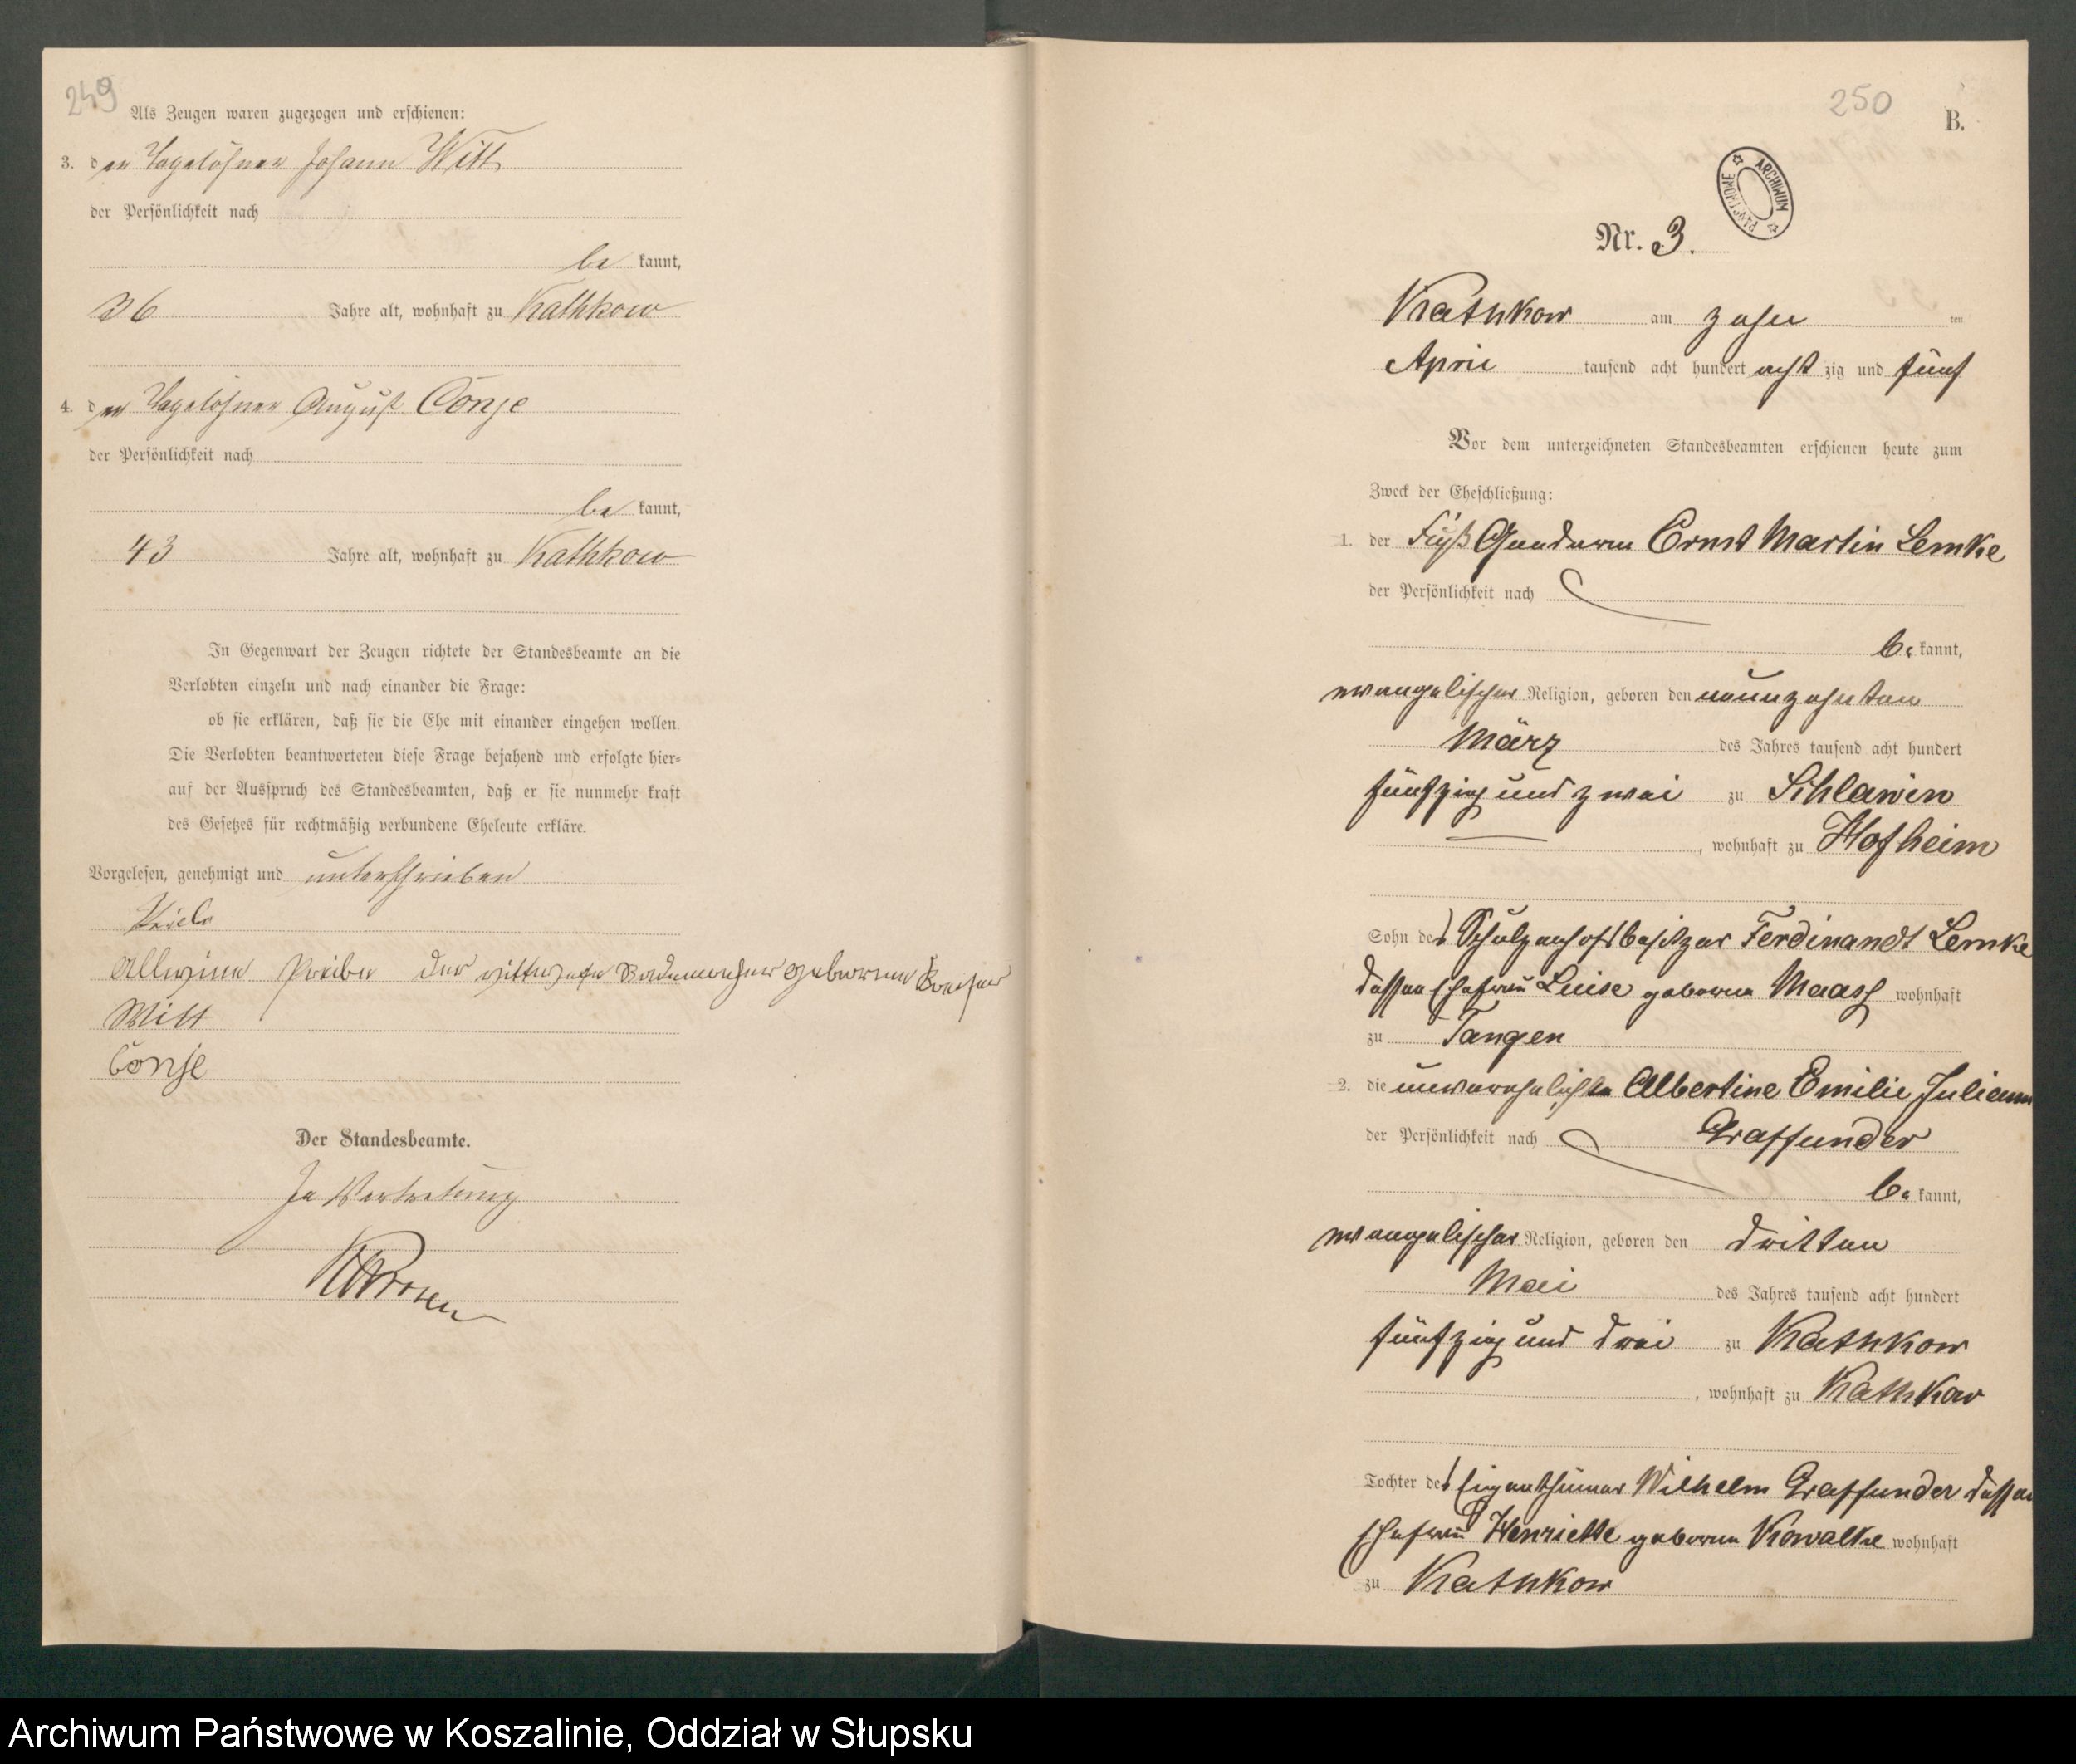 249
Als Zeugen waren zugezogen und erschienen:
3. der Tagelöhner Johann Witt
der Persönlichkeit nach
be kannt,
36 Jahre alt, wohnhaft zu Kathkow
4. der Tagelöhner August Conje
der Persönlichkeit nach
be kannt,
43 Jahre alt, wohnhaft zu Kathkow
In Gegenwart der Zeugen richtete der Standesbeamte an die
Verlobten einzeln und nach einander die Frage:
ob sie erklären, daß sie die Ehe mit einander eingehen wollen.
Die Verlobten beantworteten diese Frage bejahend und erfolgte hier-
auf der Ausspruch des Standesbeamten, daß er sie nunmehr kraft
des Gesetzes für rechtmäßig verbundene Eheleute erkläre.
Vorgelesen, genehmigt und unterschrieben
der geborene
Witt
Conje
Der Standesbeamte.
In Vertretung
250
B.
ARCHIWUM PAŃSTWOWE
Nr. 3.
Kathkow am zehn ten
April tausend acht hundert acht zig und fünf
Vor dem unterzeichneten Standesbeamten erschienen heute zum
Zweck der Eheschließung:
1. der Fuß Gendarm Ernst Martin Lemke
der Persönlichkeit nach
be kannt,
evangelischer Religion, geboren den neunzehnten
März des Jahres tausend acht hundert
fünfzig und zwei zu Schlawin
, wohnhaft zu Hofheim
Sohn des Schulzenhofsbesitzer Ferdinandt Lemke
dessen Ehefrau Luise geborene Maass wohnhaft
zu Tangen
2. die unverehelichte Albertine Emilie Juliann
der Persönlichkeit nach Graffunder
be kannt,
evangelischer Religion, geboren den dritten
Mai des Jahres tausend acht hundert
fünfzig und drei zu Kathkow
, wohnhaft zu Kathkow
Tochter des Eigenthümer Wilhelm Graffunder dessen
Ehefrau Henriette geborene Kowalke wohnhaft
zu Kathkow
Archiwum Państwowe w Koszalinie, Oddział w Słupsku